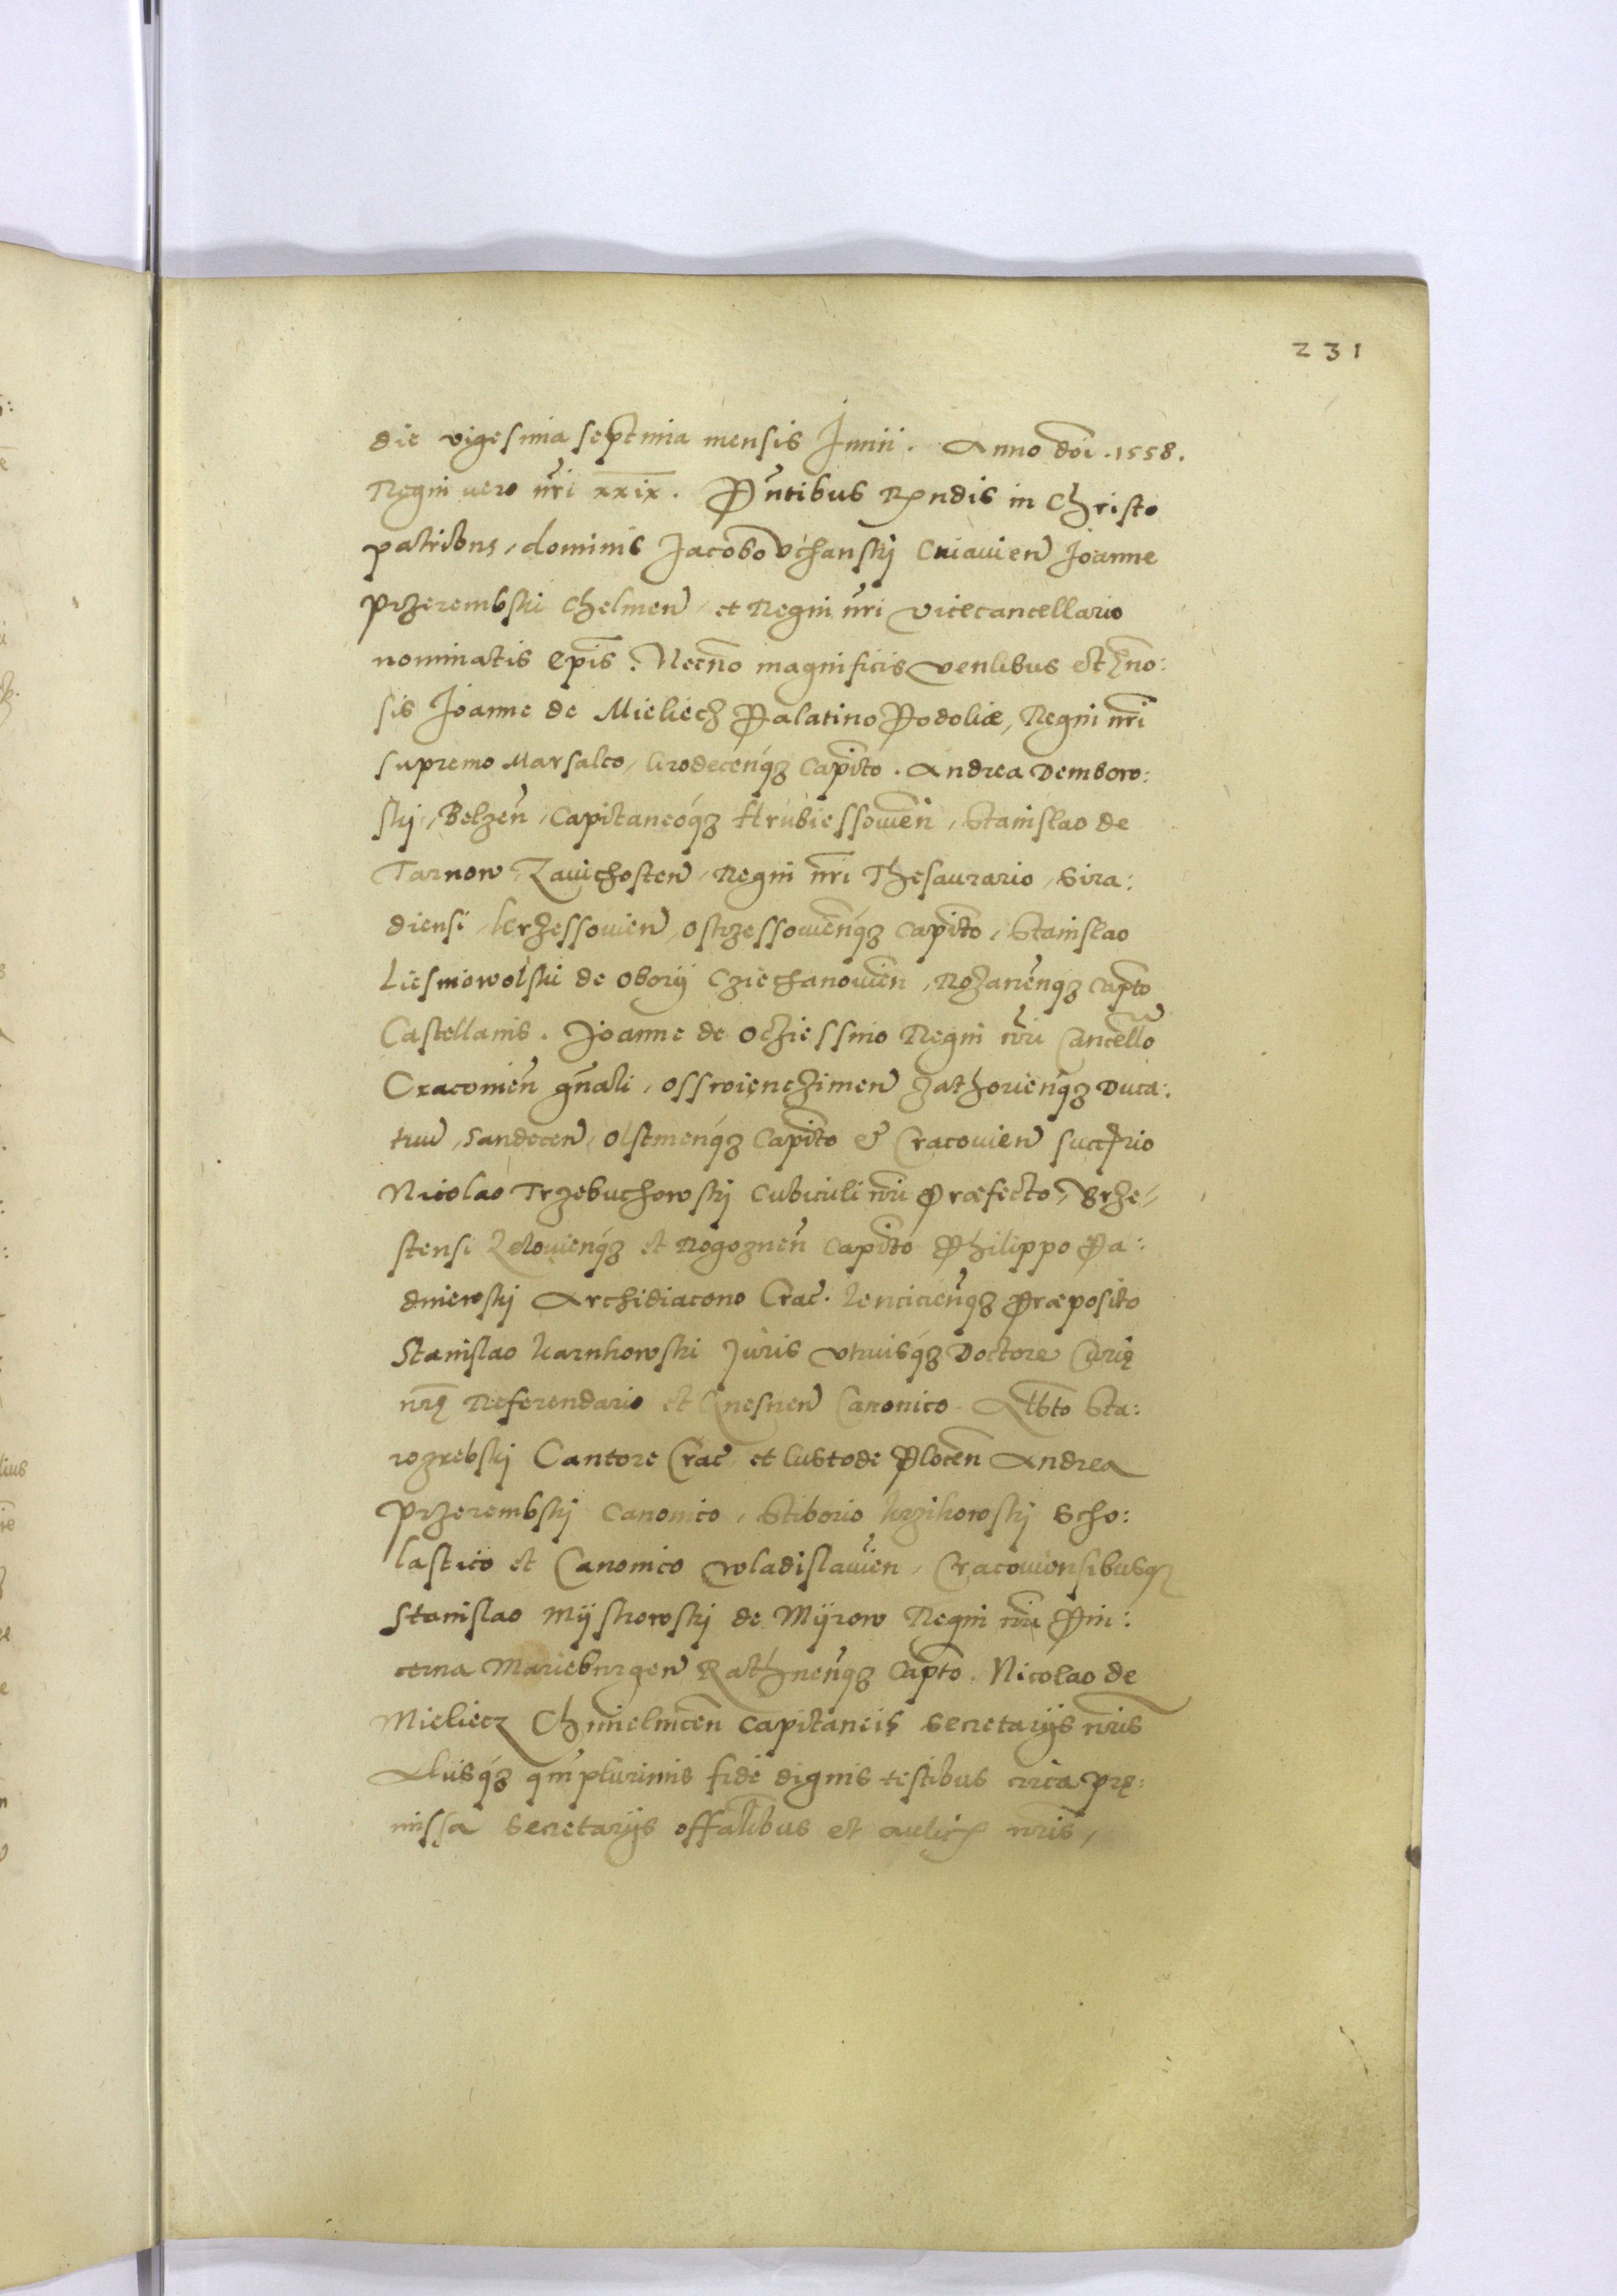 231
die vigesima septima mensis Junii. Anno doi. 1558.
Regni vero nri xxix. Pntibus Rndis in Christo
patribus, dominis Jacobo Uchanskj Cuiavien Joanne
Przerembski Chelmen, et Regni nri Vicecancellario
nominatis Epis. Necno magnificis venlibus et gno:
sis Joanne de Mieliecz Palatino Podoliæ, Regni nri
supremo Marsalco, Grodecenqz Capito. Andrea Dembow:
skj, Belzen, Capitaneoqz Hrubiessowien, Stanislao de
Tarnow Zavichosten, Regni nri Thesaurario, Sira:
diensi, Krzessowien, Ostrzessowienqz Capito, Stanislao
Liesniowolski de Oborÿ Cziechanowien, Rozanenqz Capto
Castellanis. Joanne de Ocziessino Regni nri Cancello
Cracovien gnali, Osswienczimen Zathorienqz Duca:
tuu, Sandecen, Olstinenqz Capito & Cracovien succrio
Nicolao Trzebuchowskj Cubiculi nri Præfecto, Brze-
stensi Zelowienqz et Rogoznen Capito Philippo Pa:
dniewskj Archidiacono Crac. Lencicienqz Præposito
Stanislao Karnkowski Juris utriusqz Doctore Curię
nrę Referendario et Gnesnen Canonico Albto Sta:
rozrebskj Cantore Crac et Custode Plocen Andrea
Przerembskj Canonico, Stiborio Krzikowskj Scho:
lastico et Canonico Wladislavien, Cracoviensibusq
Stanislao Mÿskowskj de Mÿrow Regni nri Pin:
cerna Marieburgen Rathnenqz Capto. Nicolao de
Mieliecz Chmielnicen Capitaneis Secretarÿs nris
Aliisqz qmplurimis fide dignis testibus circa prę:
missa Secretarÿs offalibus et aulicis nris,